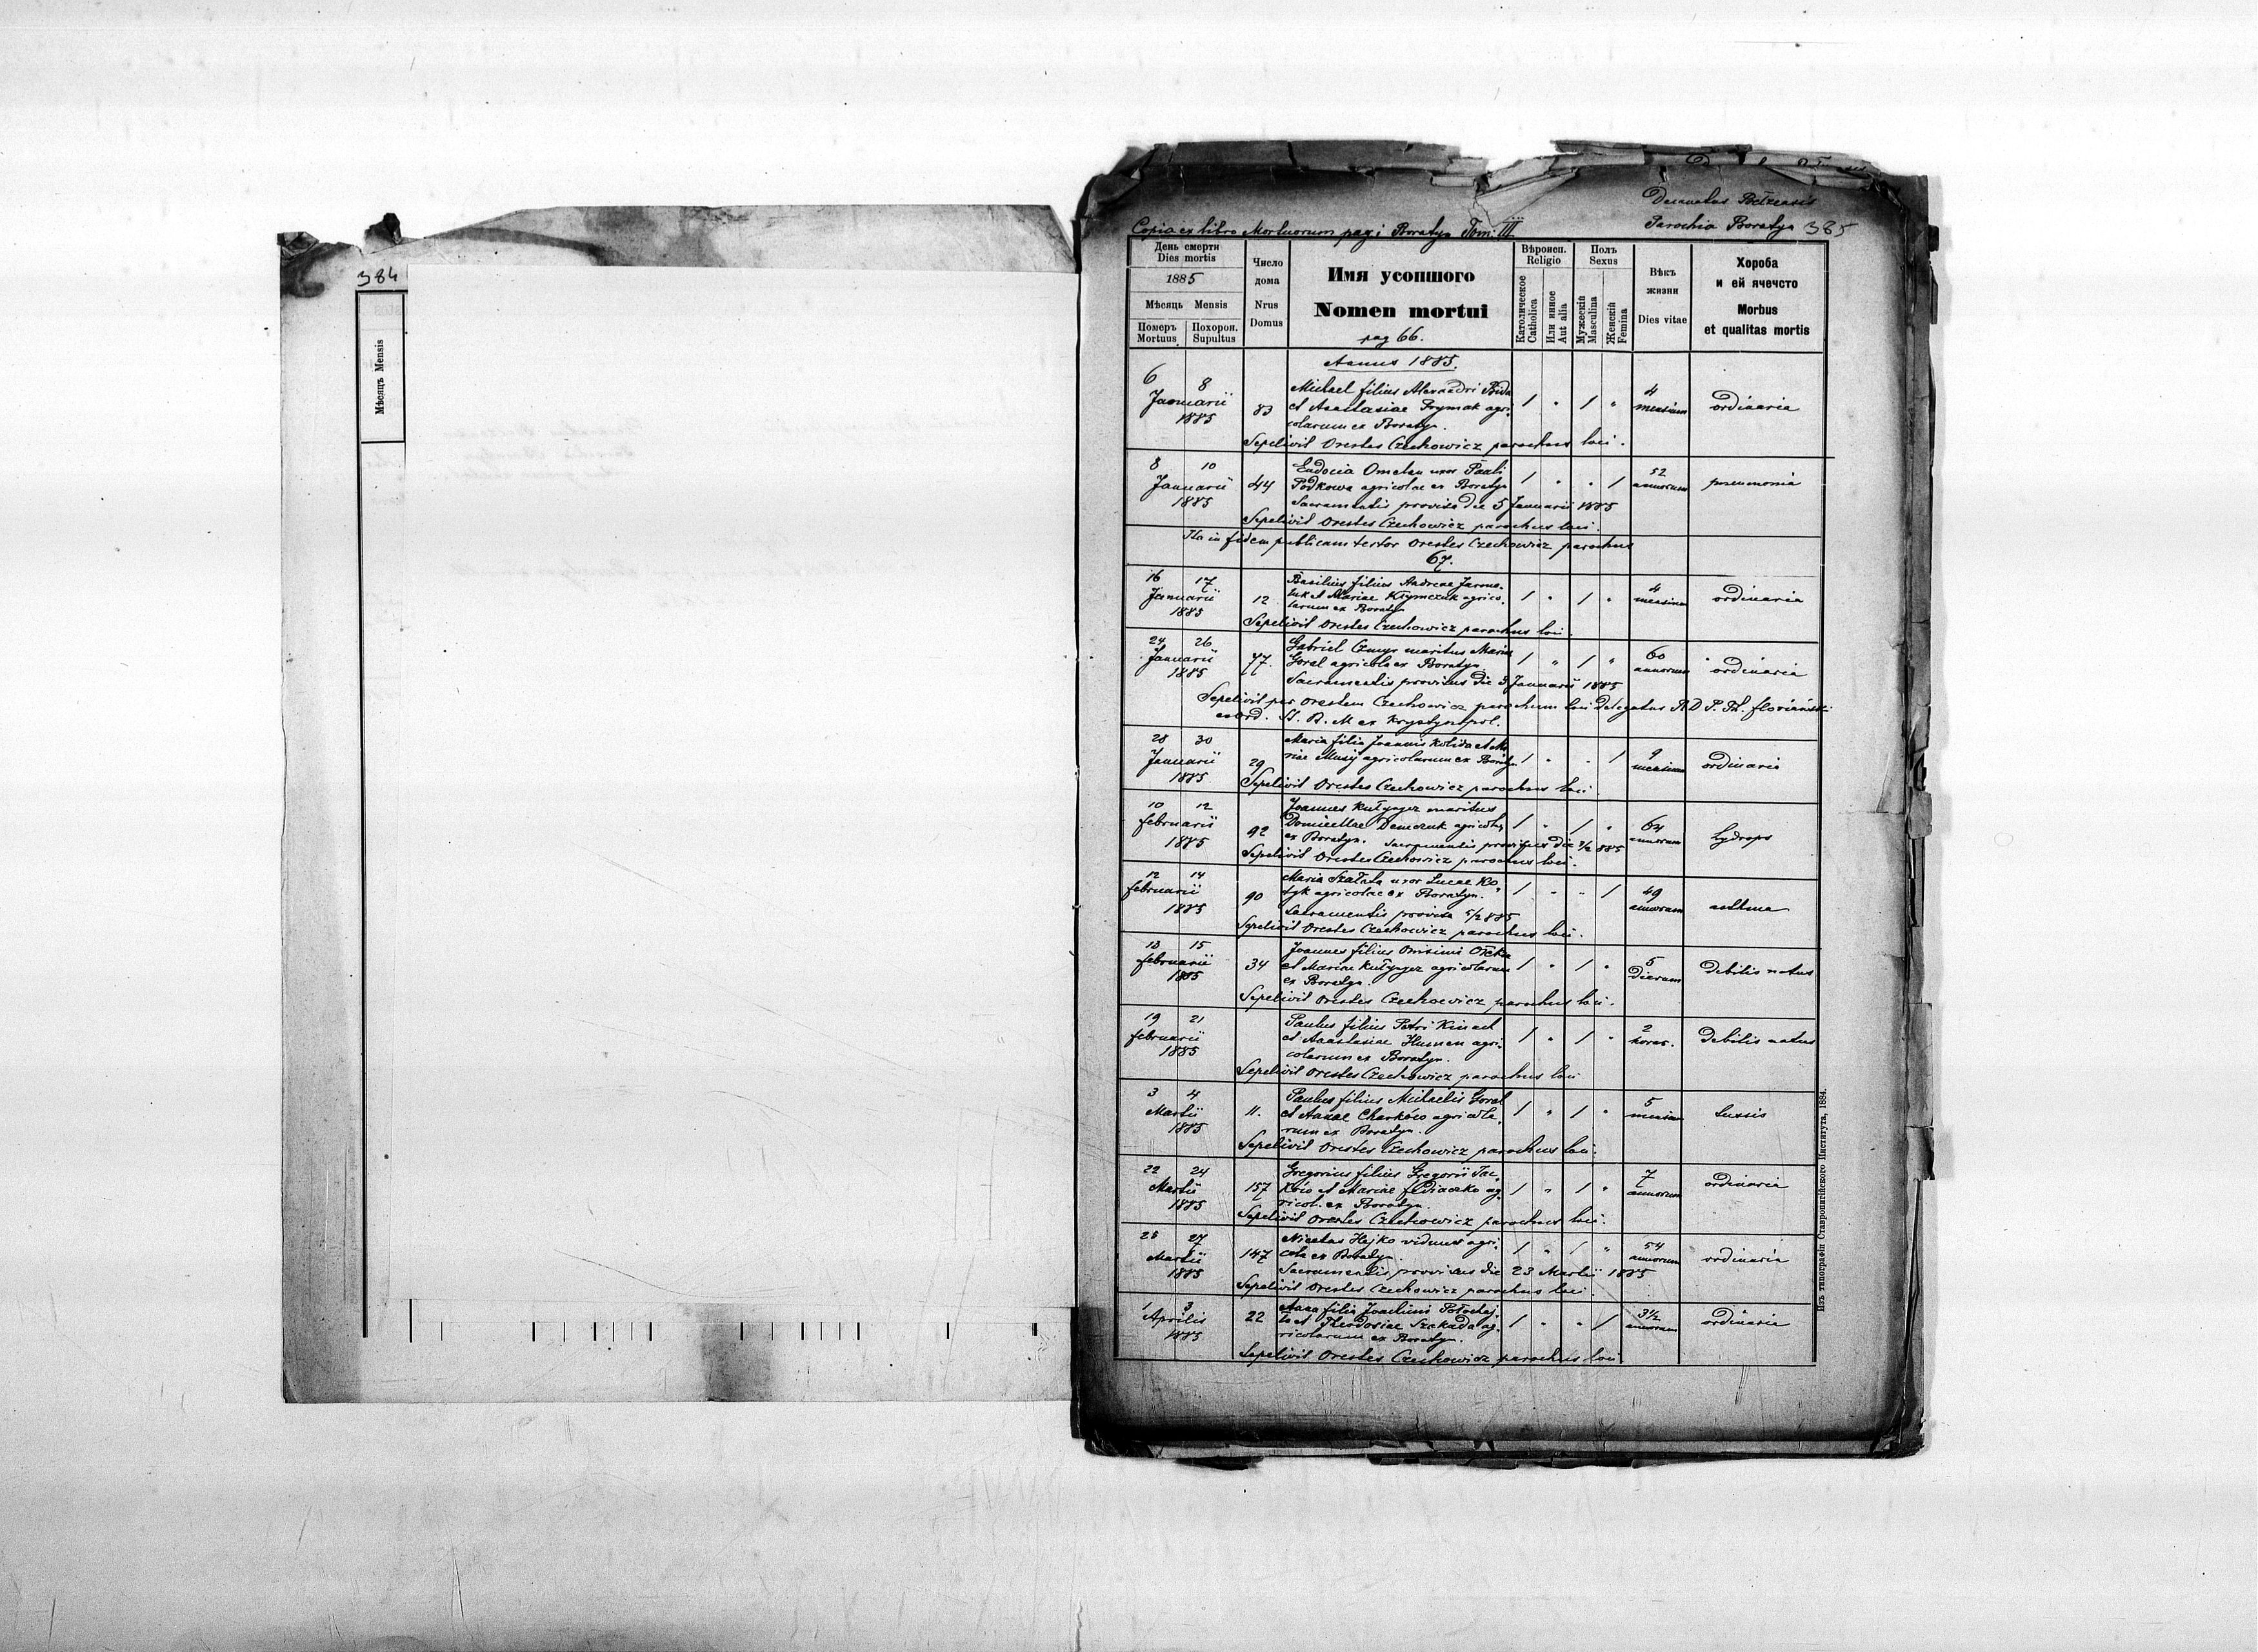 384
Мѣсяцъ Mensis
Decanatus Bełzensis
Parochia Boratyn 385
Copia ex libro Mortuorum pagi Boratyn Tom: III
День смерти
Dies mortis
1885
Мѣсяць Mensis
Померъ Mortuus
Похорон. Supultus
Число дома
Nrus Domus
Имя усопшого
Nomen mortui
pag 66.
Вѣроисп.
Religio
Католическое Catholica
Или инное Aut alia
Полъ
Sexus
Мужескій Masculina
Женскій Femina
Вѣкъ жизни
Dies vitae
Хороба
и ей ячечсто
Morbus
et qualitas mortis
Annus 1885.
6 8
Januarii
1885
83
Michael filius Alexandri
et Anastasiae Prymak agri-
colarum ex Boratyn.
1 " 1 "
4
mensium
ordinaria
Sepelivit Orestes Czechowicz parochus loci.
8 10
Januarii
1885
44
Eudocia Omelan uxor Pauli
Podkowa agricolae ex Boratyn
Sacramentis provisa die 5 Januarii 1885
1 " " 1
52
annorum
pneumonia
Sepelivit Orestes Czechowicz parochus loci.
Ita in fidem publicam testor Orestes Czechowicz parochus
67.
16 17
Januarii
1885
12
Basilius filius Andreae
et Mariae Klymczuk agrico-
larum ex Boratyn
1 " 1 "
4
mensium
ordinaria
Sepelivit Orestes Czechowicz parochus loci.
24 26
Januarii
1885
77.
Gabriel Czmyr maritus Mariae
Goral agricola ex Boratyn
Sacramentis provisus die 3 Januarii 1885
1 " 1 "
60
annorum
ordinaria
Sepelivit per Orestem Czechowicz parochum loci delegatus A.D. P.
ex Ord. St. B. M ex Krystynopol.
28 30
Januarii
1885
29
Maria filia Joannis Kolida et Ma-
riae Musij agricolarum ex Boratyn
1 " " 1
9
mensium
ordinaria
Sepelivit Orestes Czechowicz parochus loci.
10 12
februarii
1885
92
Joannes Kułynycz maritus
Domicellae Demczuk agricola
ex Boratyn. Sacramentis provisus die 7/2 885
1 " 1 "
64
annorum
hydrops
Sepelivit Orestes Czechowicz parochus loci.
12 14
februarii
1885
90
Maria Szałata uxor Lucae Ko-
tyk agricolae ex Boratyn.
Sacramentis provisa 5/2 885
1 " " 1
49
annorum
asthma
Sepelivit Orestes Czechowicz parochus loci.
13 15
februarii
1885
34
Joannes filius Onisimi
et Mariae Kułynycz agricolarum
ex Boratyn.
1 " 1 "
5
dierum
debilis natus
Sepelivit Orestes Czechowicz parochus loci.
19 21
februarii
1885
Paulus filius Petri Kinach
et Anastasiae Humen agri-
colarum ex Boratyn.
1 " 1 "
2
horas.
debilis natus
Sepelivit Orestes Czechowicz parochus loci
3 4
Martii
1885
11.
Paulus filius Michaelis Goral
et Annae Charków agricola-
rum ex Boratyn.
1 " 1 "
5
mensium
tussis
Sepelivit Orestes Czechowicz parochus loci.
22 24
Martii
1885
157
Gregorius filius Gregorii Jac-
ków et Mariae fediaczko ag-
ricol. ex Boratyn.
1 " 1 "
7
annorum
ordinaria
Sepelivit Orestes Czechowicz parochus loci.
25 27
Martii
1885
147
Nicetas Hejko viduus agri-
cola ex Boratyn.
Sacramentis provisus die 23 Martii 1885
1 " 1 "
54
annorum
ordinaria
Sepelivit Orestes Czechowicz parochus loci.
1 3
Aprilis
1885
22
Anna filia Joachimi
et Theodosiae Szekada ag-
ricolarum ex Boratyn.
1 " " 1
3½
annorum
ordinaria
Sepelivit Orestes Czechowicz parochus loci
Изъ типографіи Ставропигійского Института, 1884.